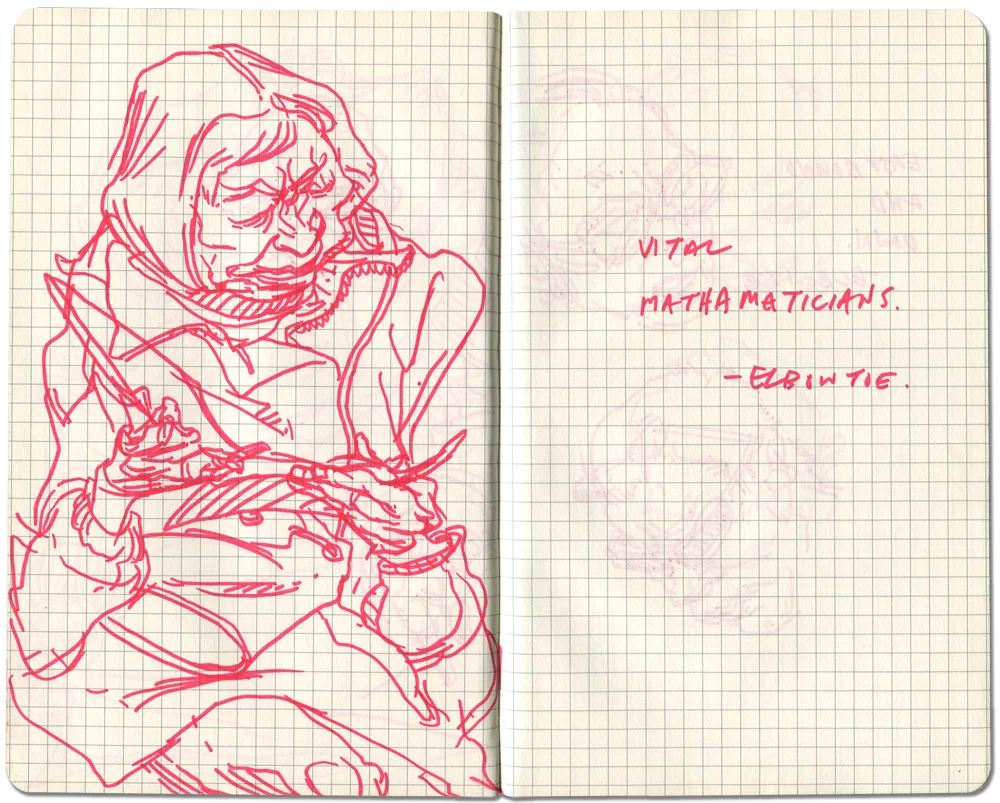 VITAL
MATHAMATICIANS.
-ELBOW TOE.